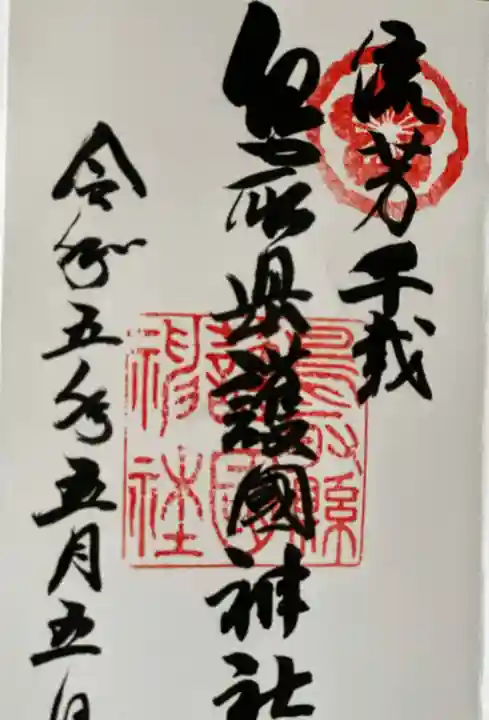 流芳千載
鳥取県護國神社
令和五年五月五日
鳥取縣
護國
神社